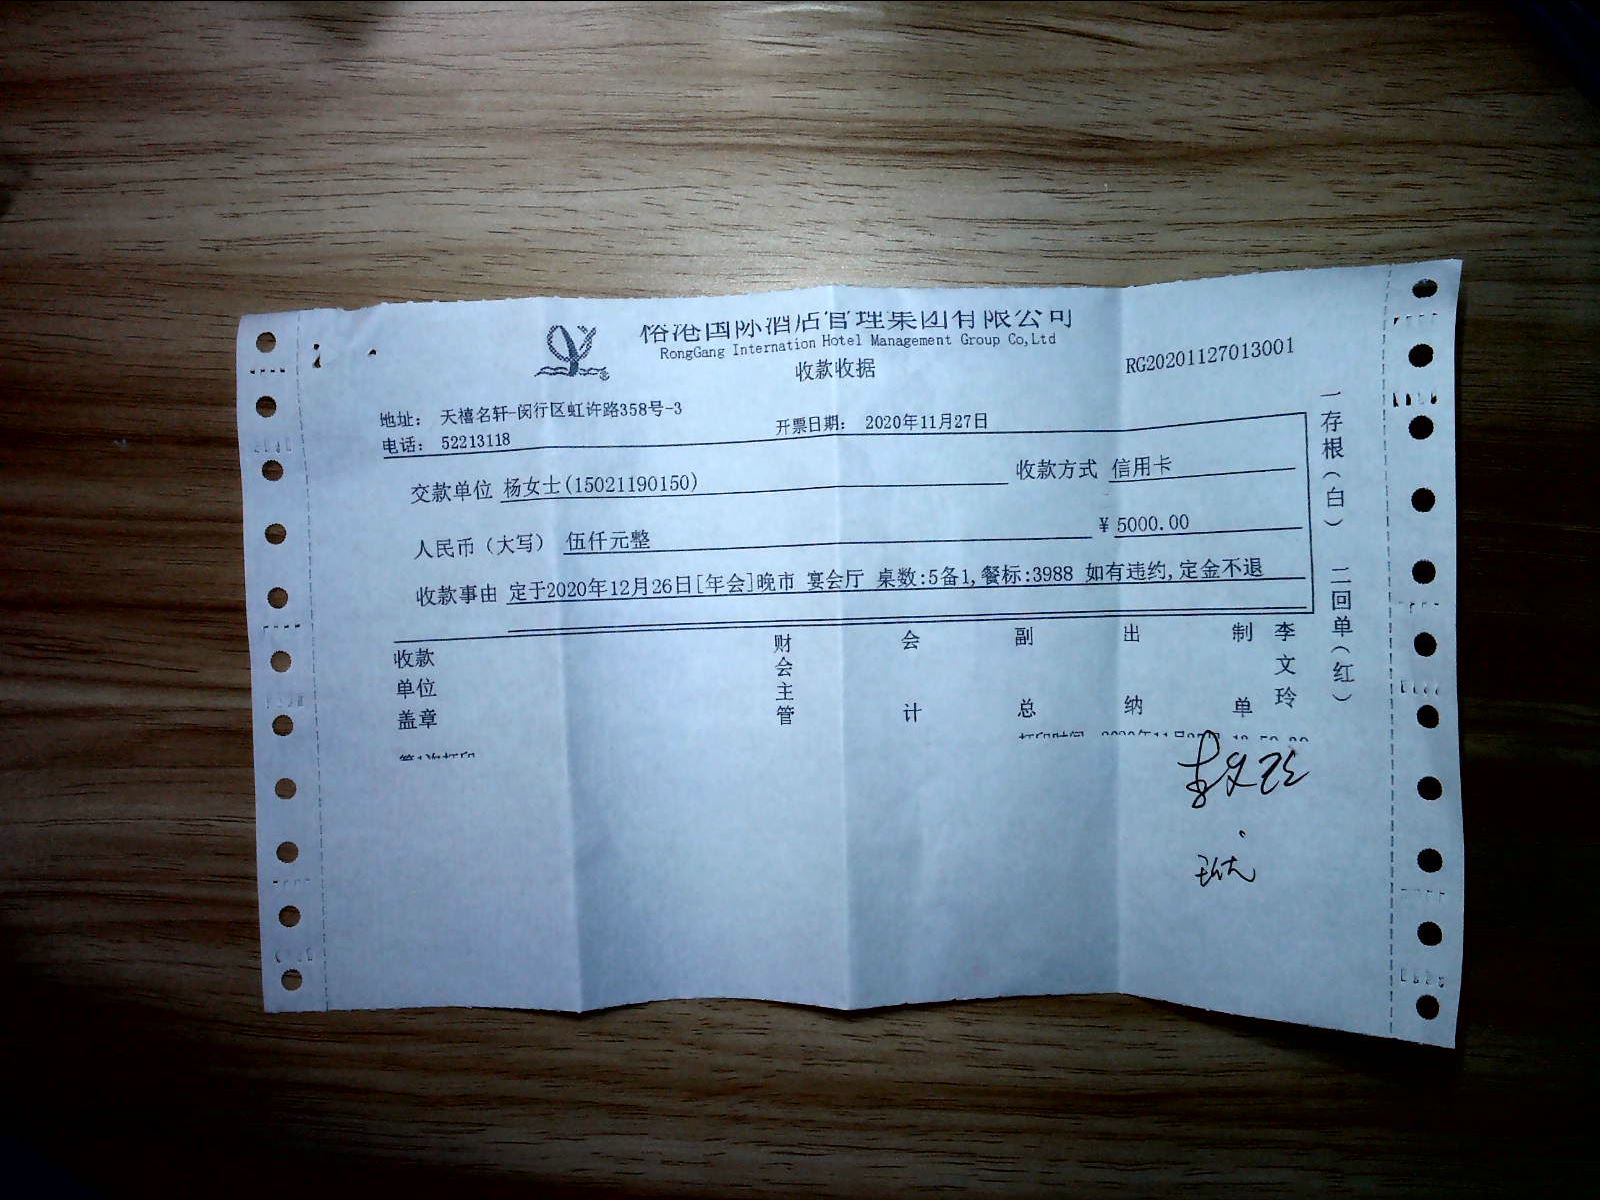 榕港国际酒店管理集团有限公司
RongGang Internation Hotel Management Group Co,Ltd
收款收据
RG20201127013001
地址： 天禧名轩-闵行区虹许路358号-3
电话： 52213118
开票日期： 2020年11月27日
交款单位 杨女士(15021190150) 收款方式 信用卡
人民币（大写） 伍仟元整 ¥ 5000.00
收款事由 定于2020年12月26日[年会]晚市 宴会厅 桌数:5备1,餐标:3988 如有违约,定金不退
收款单位盖章
财会主管
会计
副总
出纳
制单
李文玲
一存根（白） 二回单（红）
第1次打印
李文玲